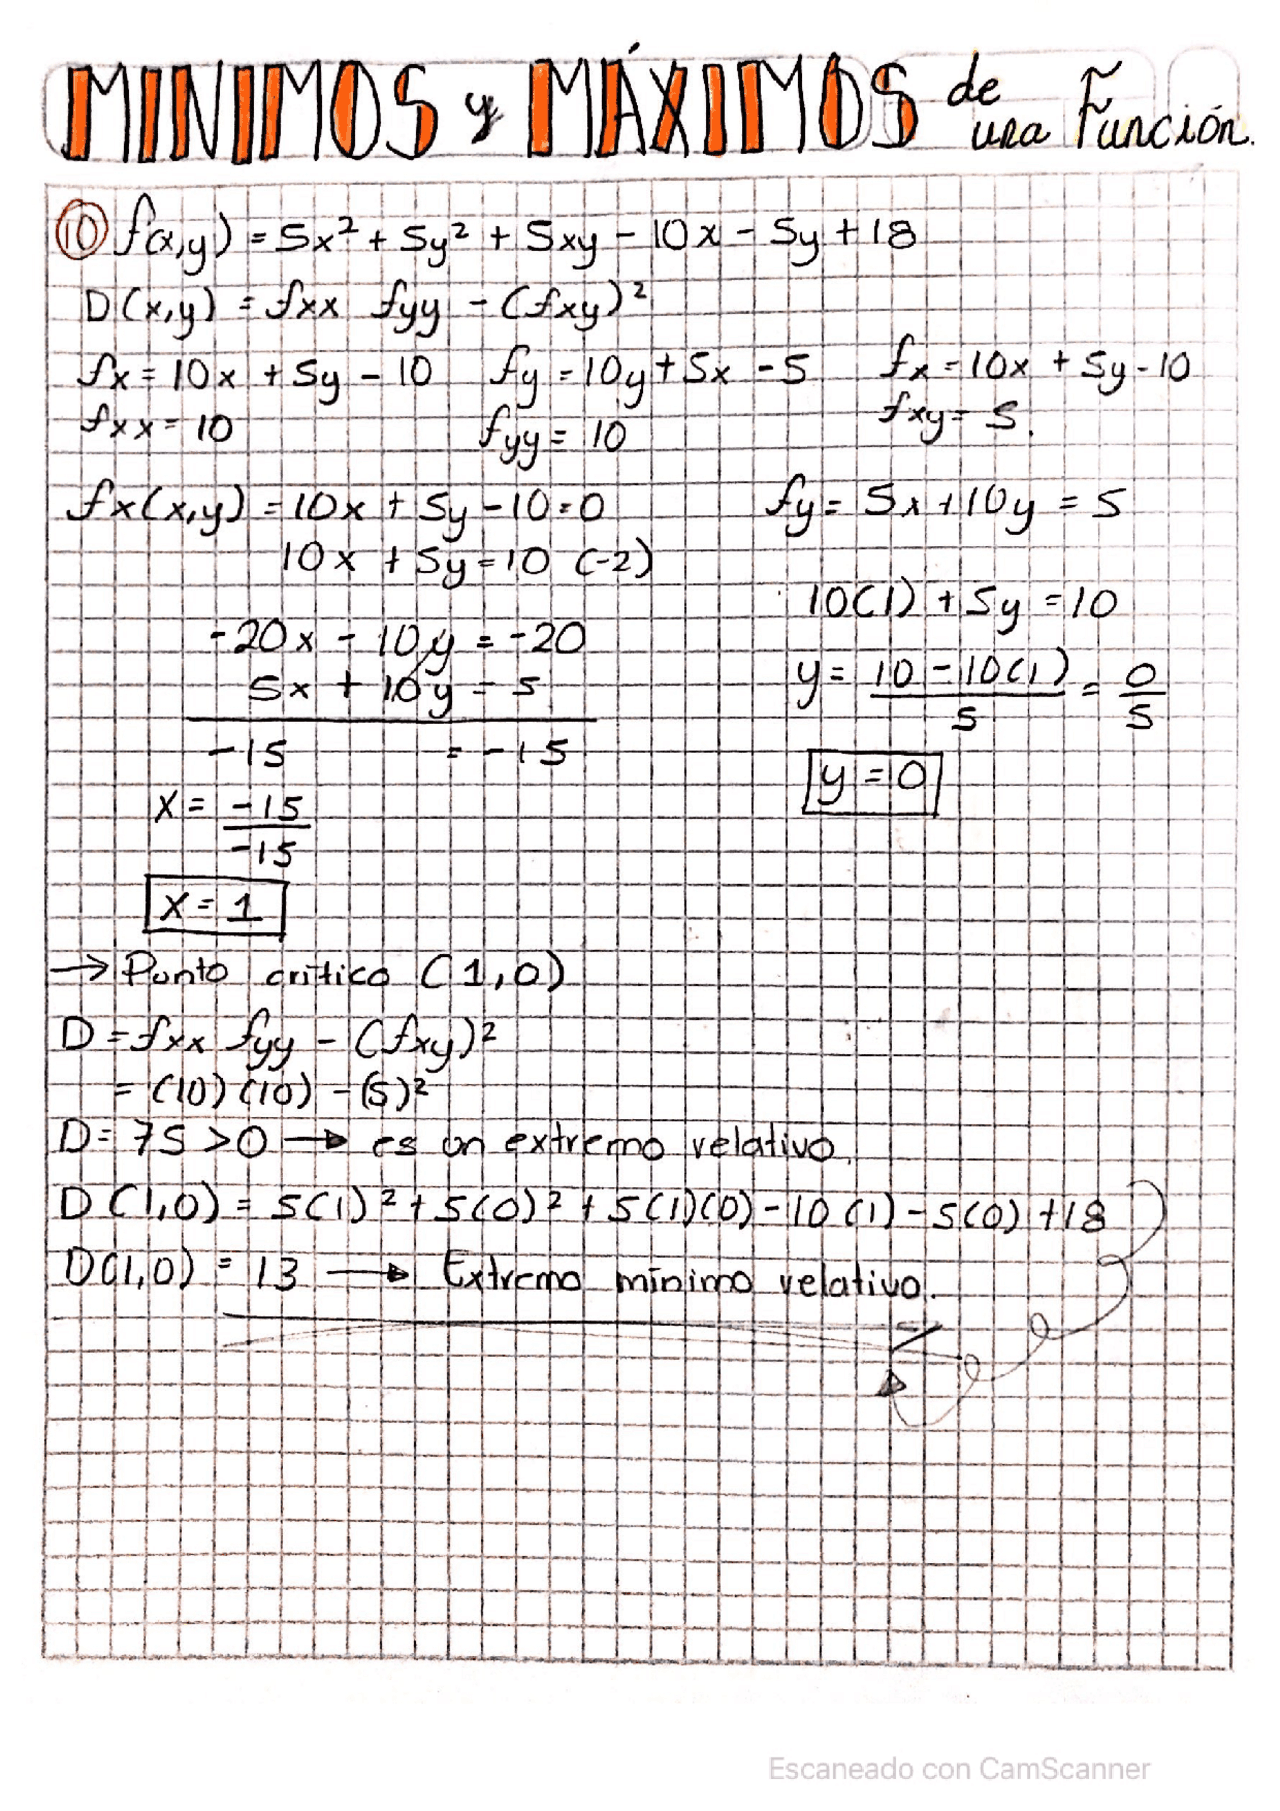 MINIMOS y MÁXIMOS de una Función.
⑩ f(x,y) = 5x² + 5y² + 5xy - 10x - 5y + 18
D(x,y) = fxx fyy - (fxy)²
fx = 10x + 5y - 10 fy = 10y + 5x - 5 fx = 10x + 5y - 10
fxx = 10 fyy = 10 fxy = 5.
fx(x,y) = 10x + 5y - 10 = 0 fy = 5x + 10y = 5
10x + 5y = 10 (-2)
10(1) + 5y = 10
-20x - 10y = -20
5x + 10y = 5
y = 10 - 10(1) / 5 = 0 / 5
-15 = -15
y = 0
x = -15 / -15
x = 1
→ Punto crítico (1,0)
D = fxx fyy - (fxy)²
= (10)(10) - (5)²
D = 75 > 0 → es un extremo relativo.
D(1,0) = 5(1)² + 5(0)² + 5(1)(0) - 10(1) - 5(0) + 18
D(1,0) = 13 → Extremo mínimo relativo.
Escaneado con CamScanner